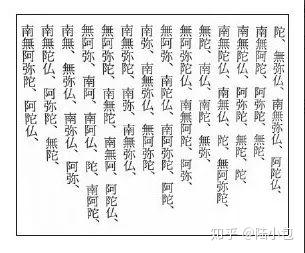 陀、無弥仏、南無弥陀、阿陀仏、
南無阿陀、無弥陀、無陀、
南無陀仏、阿弥陀、無陀、陀、
南陀仏、南無仏、陀、無阿弥陀、
無陀、南仏、南陀、無弥、
無阿弥陀仏、南無阿陀、阿弥陀、
無阿弥、南陀仏、南無弥陀、阿陀、
南弥、南無弥仏、無阿弥陀、
南無弥陀、南弥、南無弥仏、
無阿弥陀、南無陀、南無阿、阿陀仏、
無阿弥、南阿、南阿仏、陀、南阿陀、
南無、無弥仏、南弥仏、阿弥、
南無陀仏、阿弥陀、無陀、
南無阿弥陀、阿陀仏、
知乎 @陆小包